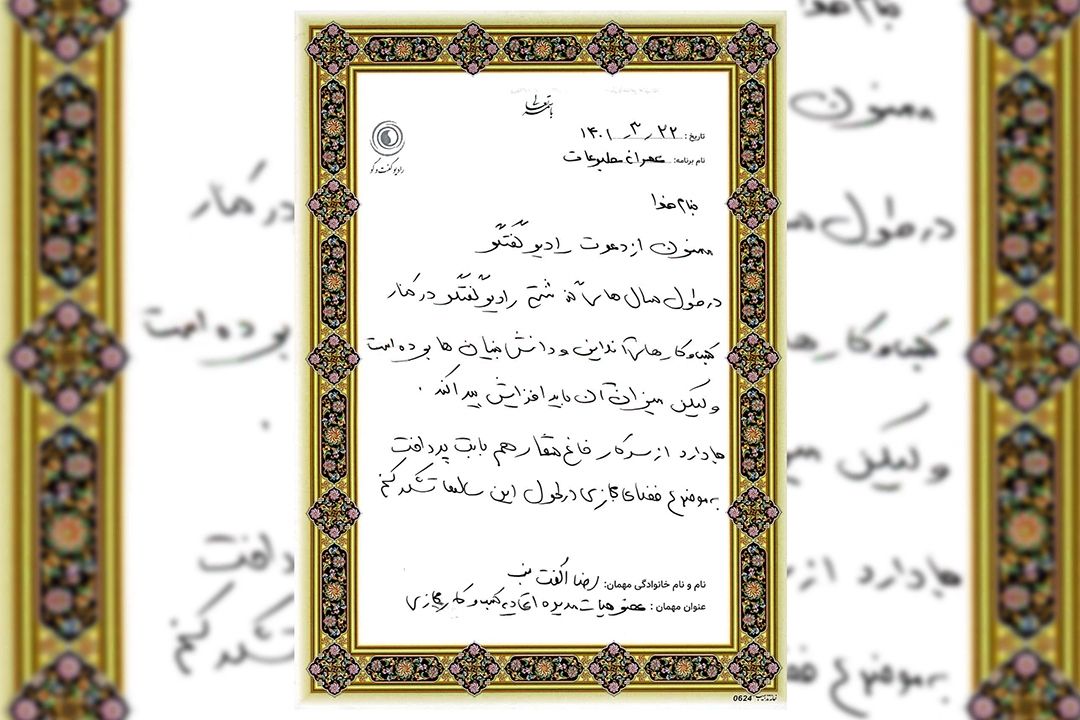 باسمه تعالی
رادیو گفت و گو
تاریخ: ۱۴۰۱٫۳٫۲۲
نام برنامه: عصرانه مطبوعات
بنام خدا
ممنون از دعوت رادیو گفتگو
در طول سال های گذشته رادیو گفتگو در کنار
کسب و کار های آنلاین و دانش بنیان ها بوده است
ولیکن میزان آن باید افزایش پیدا کند.
جا دارد از سرکار خانم هم بابت پرداخت
به موضوع فضای مجازی در طول این سالها تشکر کنم
نام و نام خانوادگی مهمان: رضا الفت نسب
عنوان مهمان: عضو هیات مدیره اتحادیه کسب و کار مجازی
0624